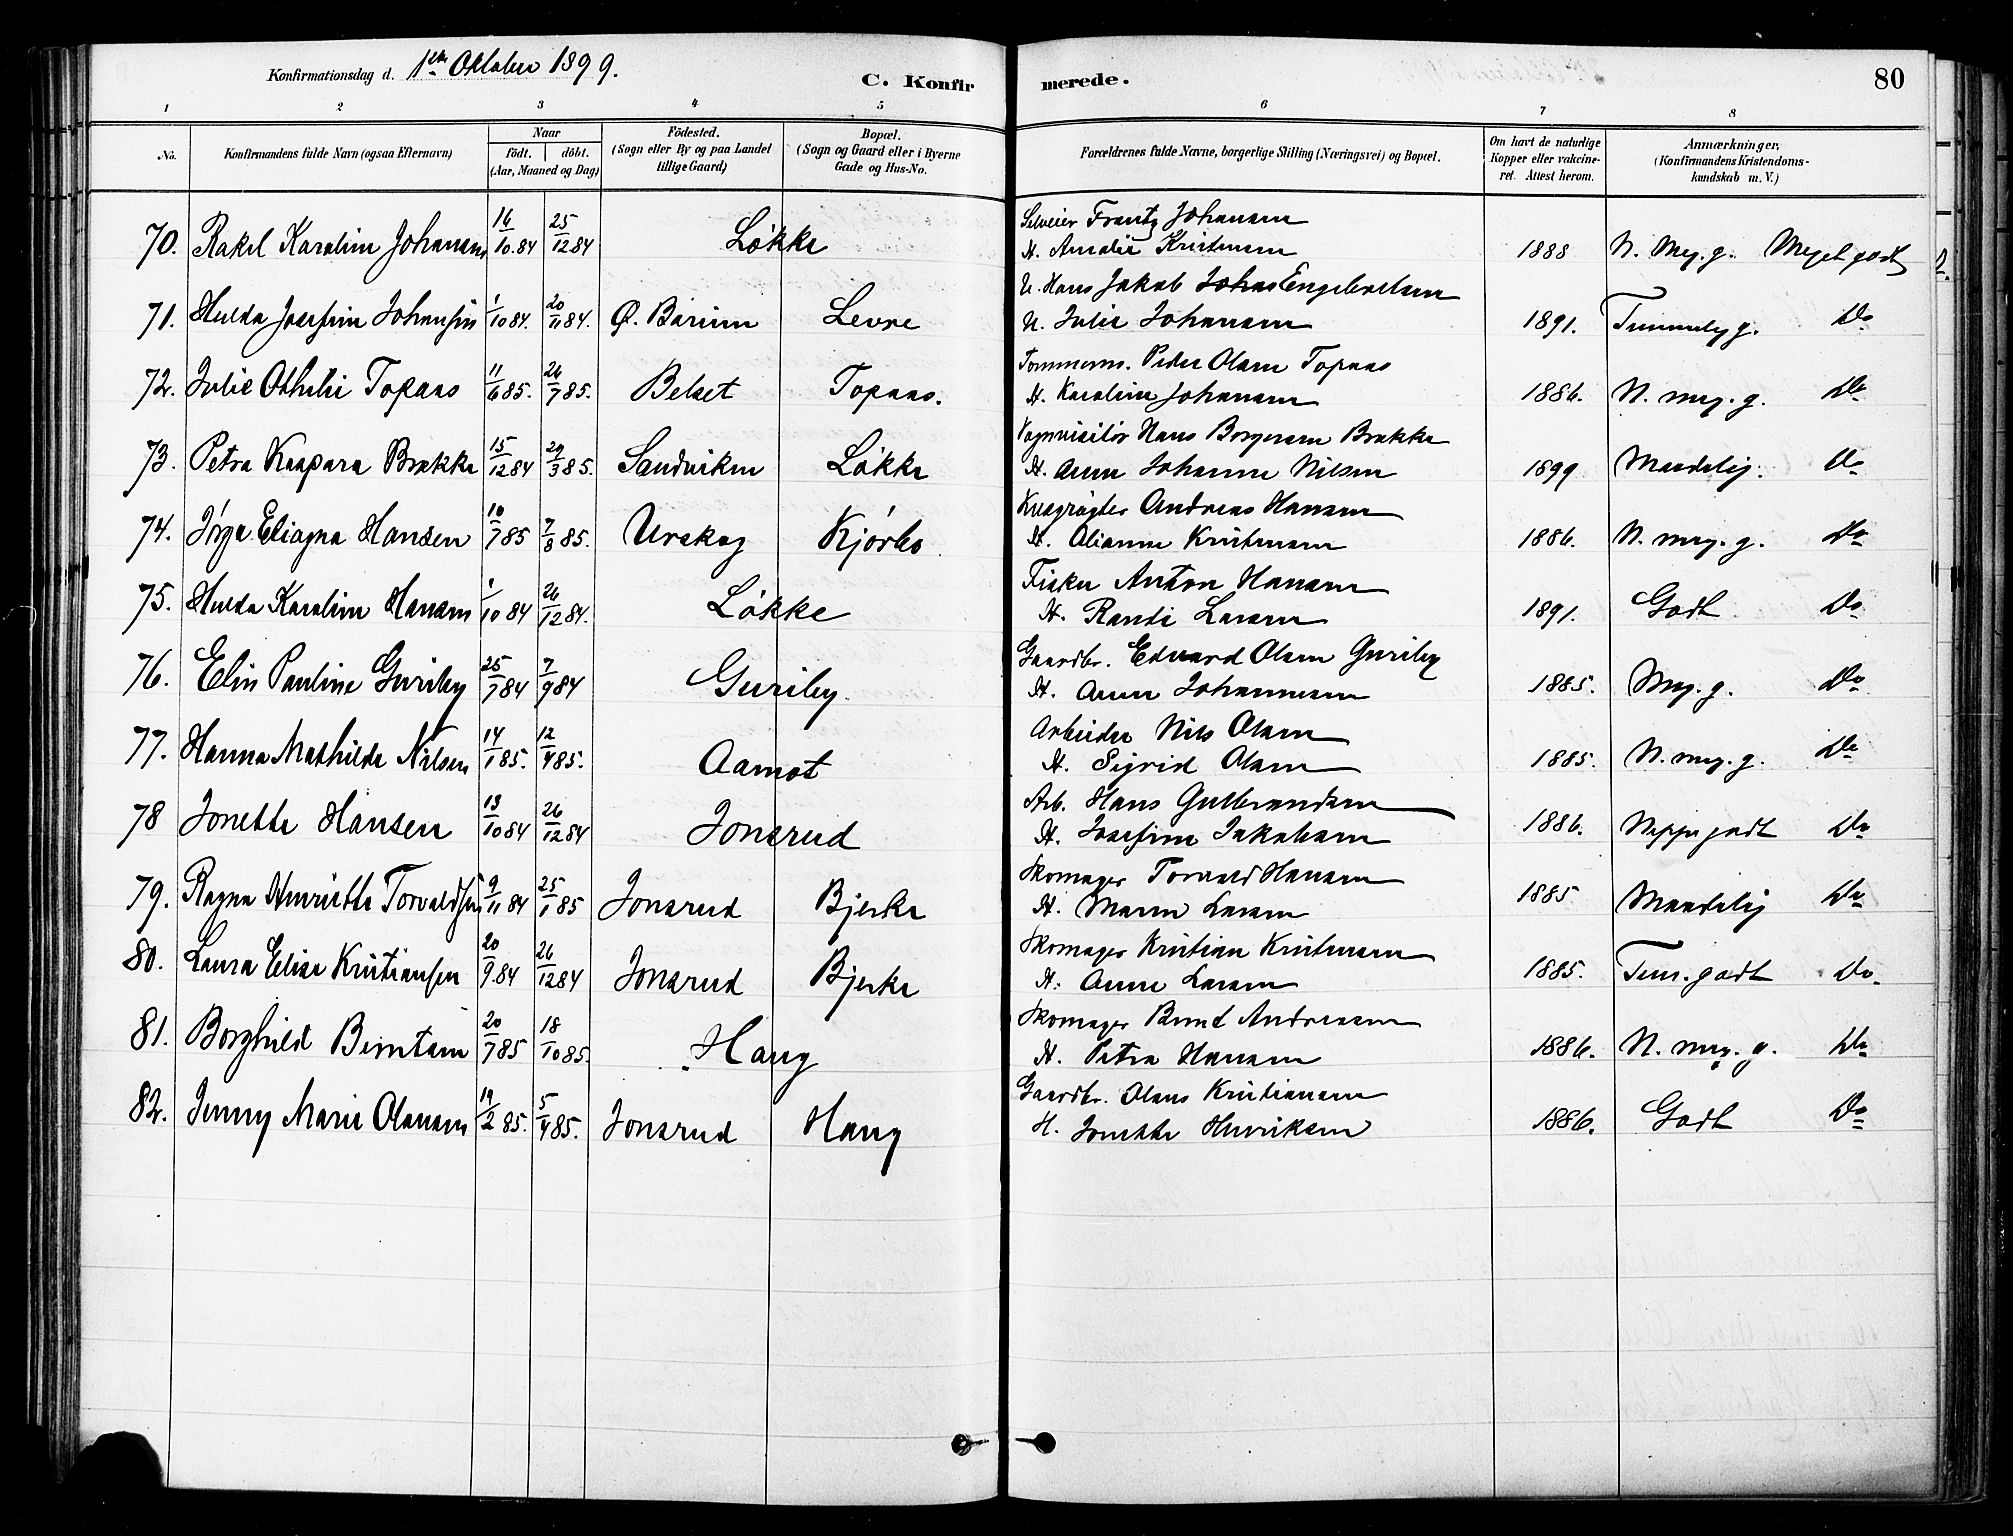 Konfirmationsdag d. 1ste Oktober 1899.
C. Konfirmerede.
80
1 2 3 4 5 6 7 8
No.
Konfirmandens fulde Navn (ogsaa Efternavn)
Naar
født. døbt.
(Aar, Maaned og Dag)
Fødested.
(Sogn eller By og paa Landet
tillige Gaard)
Bopæl.
(Sogn og Gaard eller i Byerne
Gade og Hus-No.
Forældrenes fulde Navne, borgerlige Stilling (Næringsvei) og Bopæl.
Om havt de naturlige
Kopper eller vakcine-
ret. Attest herom.
Anmærkninger,
(Konfirmandens Kristendoms-
kundskab m. V.)
70. Rakel Karoline Johansen 16/10.84 25/12 84 Løkke
Selveier Frantz Johansen
H. Amalie Kristensen 1888 N. Meg. g. Meget godt
71. Hulda Josefine Johansen 1/10 84. 20/11 84. Ø. Bærum Levre
U. Hans Jakob Johns Engebretsen
U. Julie Johansen 1891. Temmelig g. Do
72. Julie Othilie Topaas 11/6 85. 26/7 85. Belset Topaas.
Tømmerm. Peder Olsen Topaas
H. Karoline Johansen 1886. N. meg. g. Do
73. Petra Kaspara Brække 15/12 84 29/3 85. Sandviken Løkke
Vognvisitør Hans Borgersen Brække
H. Anne Johanne Nilsen 1899 Maadelig. Do
74. Jørga Eliagna Hansen 10/7 85 7/8 85. Urskog Kjørbo
Kvægrøgter Andreas Hansen
H. Olianne Kristensen 1886. N. meg. g. Do
75. Hulda Karoline Hansen 1/10 84 26/12 84. Løkke
Fisker Anton Hansen
H. Randi Larsen 1891. Godt Do
76. Elin Pauline Guriby 25/7 84 7/9 84 Guriby.
Gaardbr. Edvard Olsen Guriby
H. Anne Johannesen 1885. Meg. g. Do
77. Hanna Mathilde Nilsen 14/1 85. 12/4 85. Aamot
Arbeider Nils Olsen
H. Sigrid Olsen 1885. N. meg. g. Do
78 Jonette Hansen 13/10 84 26/12 84 Jonsrud
Arb. Hans Gulbrandsen
H. Josefine Jakobsen 1886. Neppe godt Do
79. Ragna Henriette Torvaldsen 9/11 84 25/1 85 Jonsrud Bjerke
Skomager Torvald Hansen
H. Maren Larsen 1885 Maadelig Do
80. Laura Elise Kristiansen 20/9.84 26/12 84 Jonsrud Bjerke
Skomager Kristian Kristensen
H. Anne Larsen 1885. Tem. godt Do.
81. Borghild Berntsen 20/7 85 18/10 85. Haug
Skomager Bernt Andreasen
H. Petra Hansen 1886. N. meg. g. Do
82. Jenny Marie Olausen 19/2 85. 5/4 85. Jonsrud Haug
Gaardbr. Olaus Kristiansen
H. Jonette Henriksen 1886. Godt Do